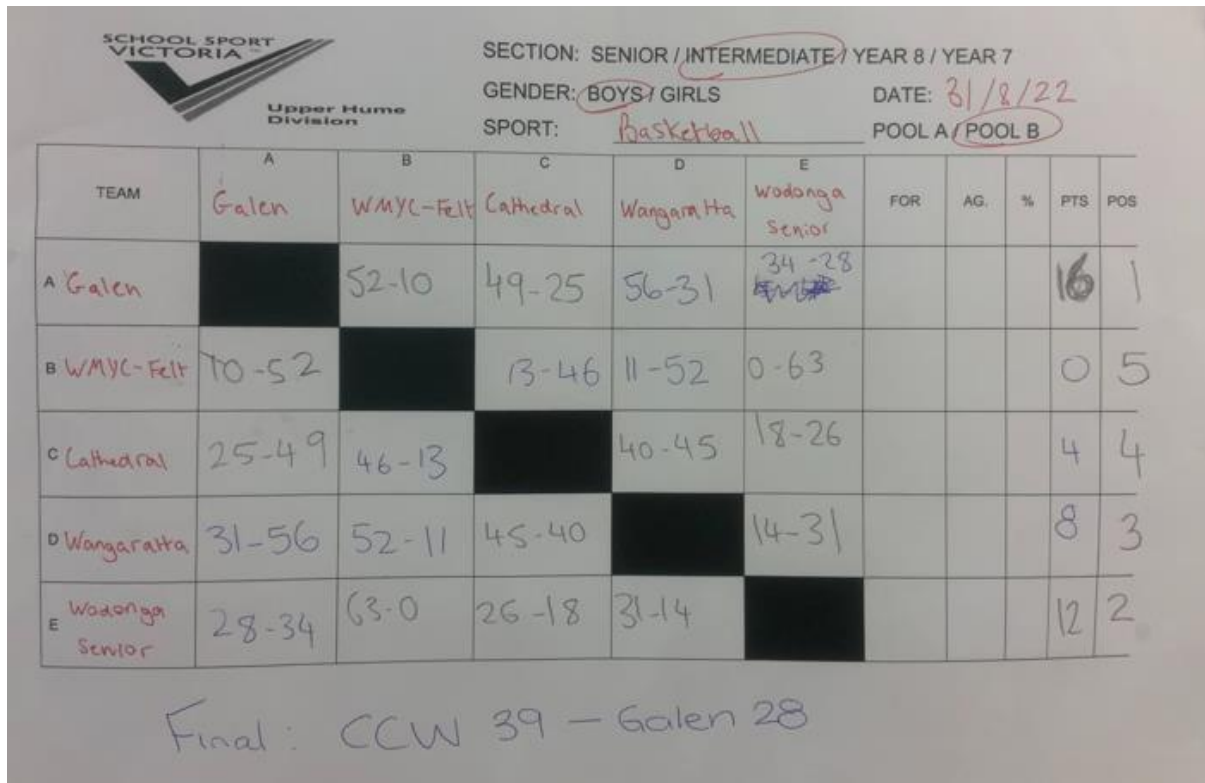 SCHOOL SPORT
VICTORIA
Upper Hume
Division
SECTION: SENIOR / INTERMEDIATE / YEAR 8 / YEAR 7
GENDER: BOYS / GIRLS DATE: 31/8/22
SPORT: Basketball POOL A / POOL B
TEAM A Galen B WMYC-Felt C Cathedral D Wangaratta E Wodonga Senior FOR AG. % PTS POS
A Galen 52-10 49-25 56-31 34-28 16 1
B WMYC-Felt 10-52 13-46 11-52 0-63 0 5
C Cathedral 25-49 46-13 40-45 18-26 4 4
D Wangaratta 31-56 52-11 45-40 14-31 8 3
E Wodonga Senior 28-34 63-0 26-18 31-14 12 2
Final: CCW 39 - Galen 28